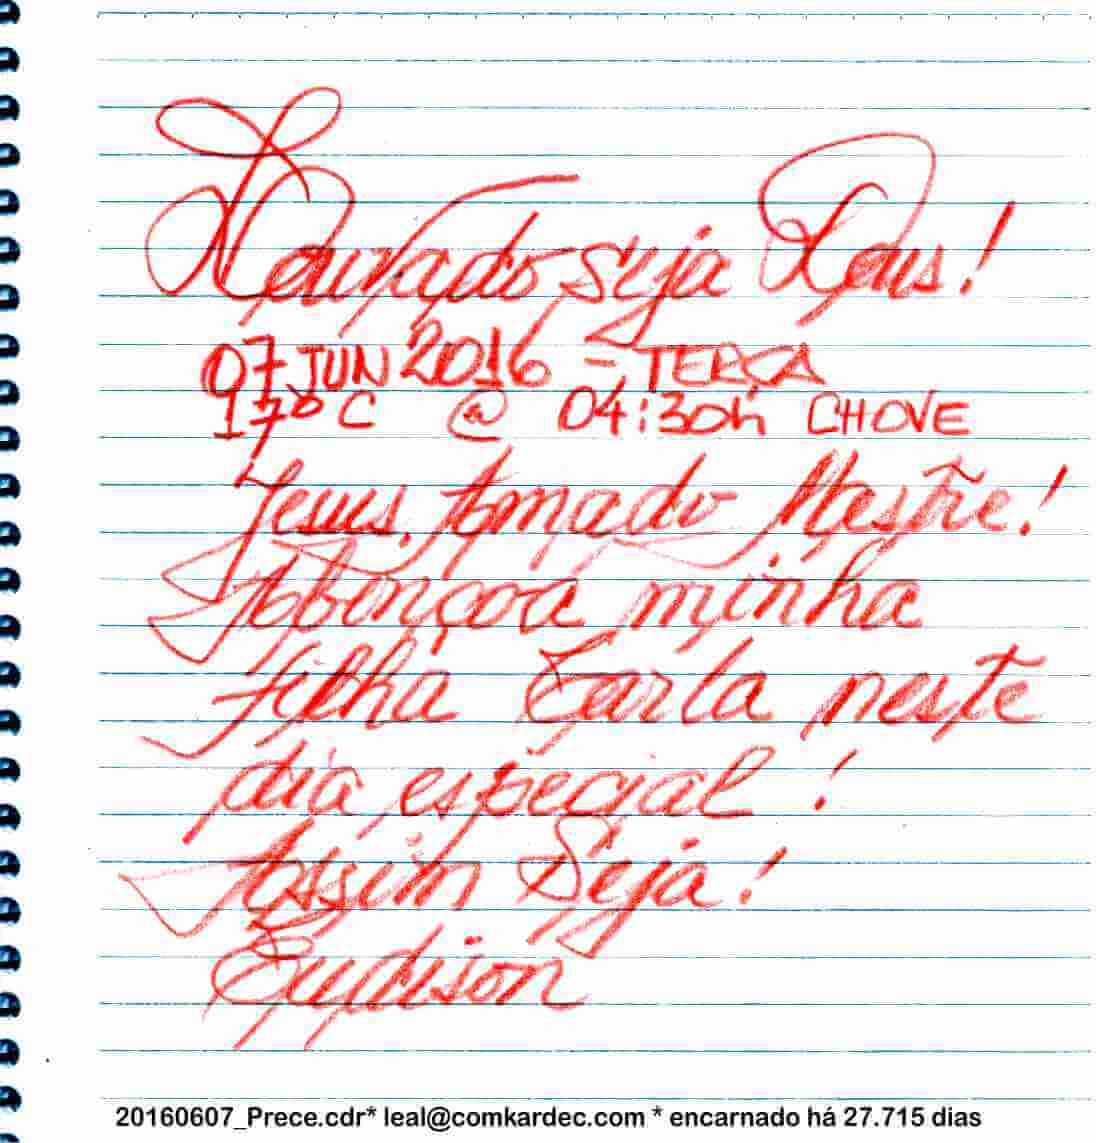 Louvado seja Deus!
07 JUN 2016 - TERÇA
17º C @ 04:30h CHOVE
Jesus, Amado Mestre!
Abençoa minha
filha Carla neste
dia especial!
Assim Seja!
20160607_Prece.cdr* leal@comkardec.com * encarnado há 27.715 dias